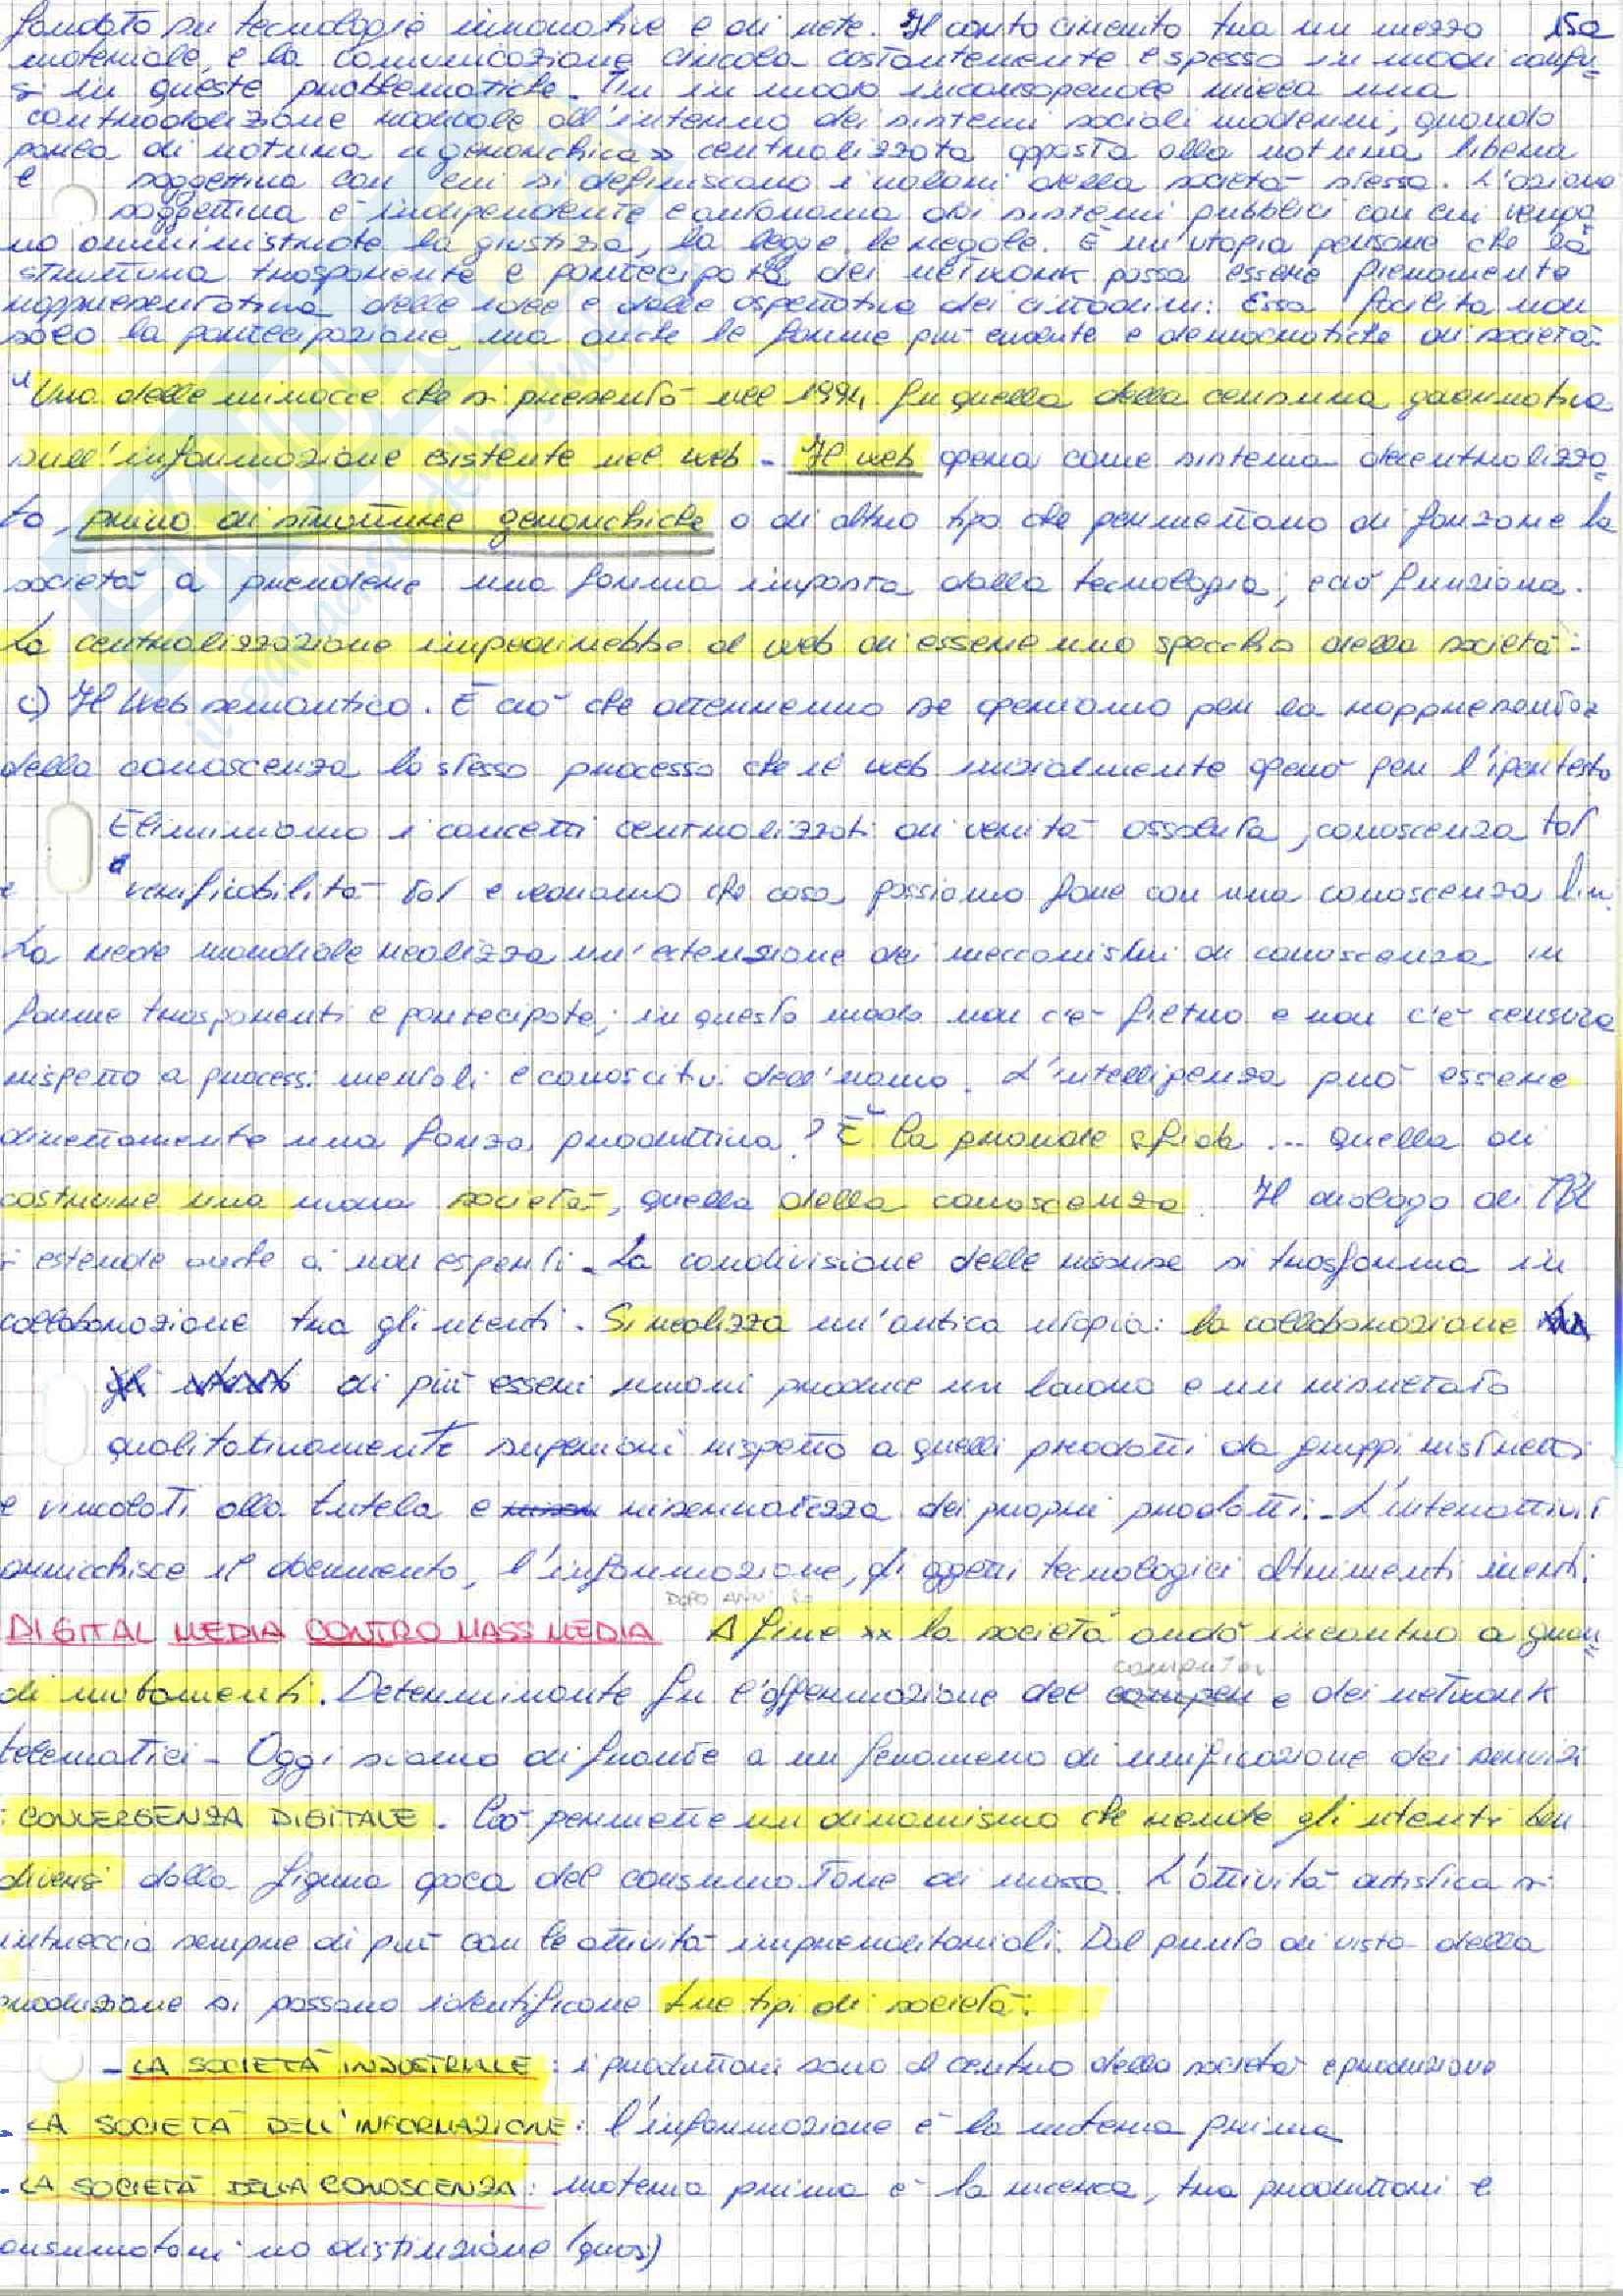 fondato su tecnologie innovative e di rete. Il conto cimento tra un mezzo 150
materiale, e la comunicazione circola costantemente e spesso in modi confu
si in queste problematiche. in modo inconsapevole una
contraddizione normale all'interno dei sistemi sociali moderni, quando
parla di natura «gerarchica» centralizzata opposta alla natura libera
e soggettiva con cui si definiscono i valori della società stessa. L'azione
soggettiva è indipendente e autonoma dai sistemi pubblici con cui vengo
no amministrate la giustizia, la legge, le regole. È un'utopia pensare che la
struttura trasparente e partecipata dei network possa essere pienamente
rappresentativa delle idee e delle aspettative dei cittadini: Essa facilita non
solo la partecipazione, ma anche le forme più evolute e democratiche di società
"Una delle minacce che si presentò nel 1994, fu quella della censura governativa
sull'informazione esistente nel web - Il web opera come sistema decentralizza=
to, privo di strutture gerarchiche o di altro tipo che permettano di forzare la
società a prendere una forma imposta dalla tecnologia; e ciò funziona.
La centralizzazione impedirebbe al web di essere uno specchio della società.
c) Il Web semantico. È ciò che otterremo se operiamo per la rappresentaz
della conoscenza lo stesso processo che il web inizialmente operò per l'ipertesto
Eliminiamo i concetti centralizzati di verità assoluta, conoscenza tot
e verificabilità tot e vediamo che cosa possiamo fare con una conoscenza lim.
La rete mondiale realizza un'estensione dei meccanismi di conoscenza in
forme trasparenti e partecipate; in questo modo non c'è filtro e non c'è censura
rispetto a processi mentali e conoscitivi dell'uomo. L'intelligenza può essere
direttamente una forza produttiva? È la grande sfida ... quella di
costruire una nuova società, quella della conoscenza. Il dialogo di TBL
si estende anche ai non esperti. La condivisione delle risorse si trasforma in
collaborazione tra gli utenti. Si realizza un'antica utopia: la collaborazione
di più esseri umani produce un lavoro e un risultato
qualitativamente superiori rispetto a quelli prodotti da gruppi ristretti
e vincolati alla tutela e riservatezza dei propri prodotti. L'interattivit
arricchisce il documento, l'informazione, gli oggetti tecnologici altrimenti inerti.
DOPO ANNI 80
DIGITAL MEDIA CONTRO MASS MEDIA A fine xx la società andò incontro a gran=
computer
di mutamenti. Determinante fu l'affermazione del e dei network
telematici - Oggi siamo di fronte a un fenomeno di unificazione dei servizi
: CONVERGENZA DIGITALE. Ciò permette un dinamismo che rende gli utenti ben
diversi dalla figura opaca del consumatore di massa. L'attività artistica si
intreccia sempre di più con le attività imprenditoriali. Dal punto di vista della
produzione si possono identificare tre tipi di società:
- LA SOCIETÀ INDUSTRIALE: i produttori sono al centro della società e produzione
- LA SOCIETÀ DELL'INFORMAZIONE: l'informazione è la materia prima
- LA SOCIETÀ DELLA CONOSCENZA: materia prima è la ricerca, tra produttori e
consumatori no distinzione (quasi)